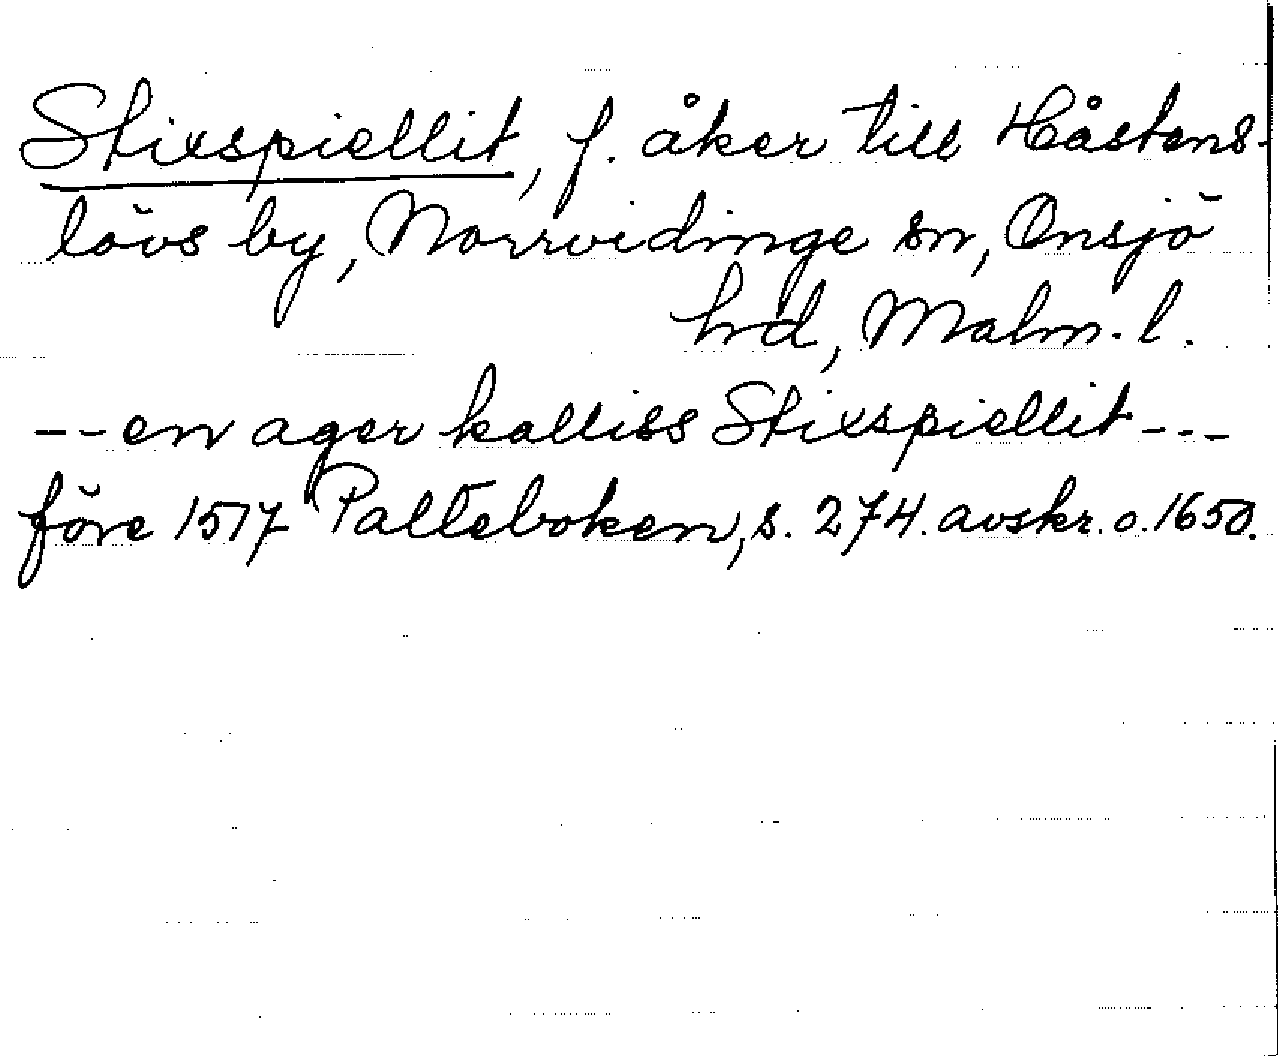 Stixspiellit, f. åker till Håstens-
lövs by, Norrvidinge sn, Onsjö
hrd, Malm. l.
-- en ager kalliss Stixspiellit ---
före 1517 Palteboken, s. 274. avskr. o. 1650.